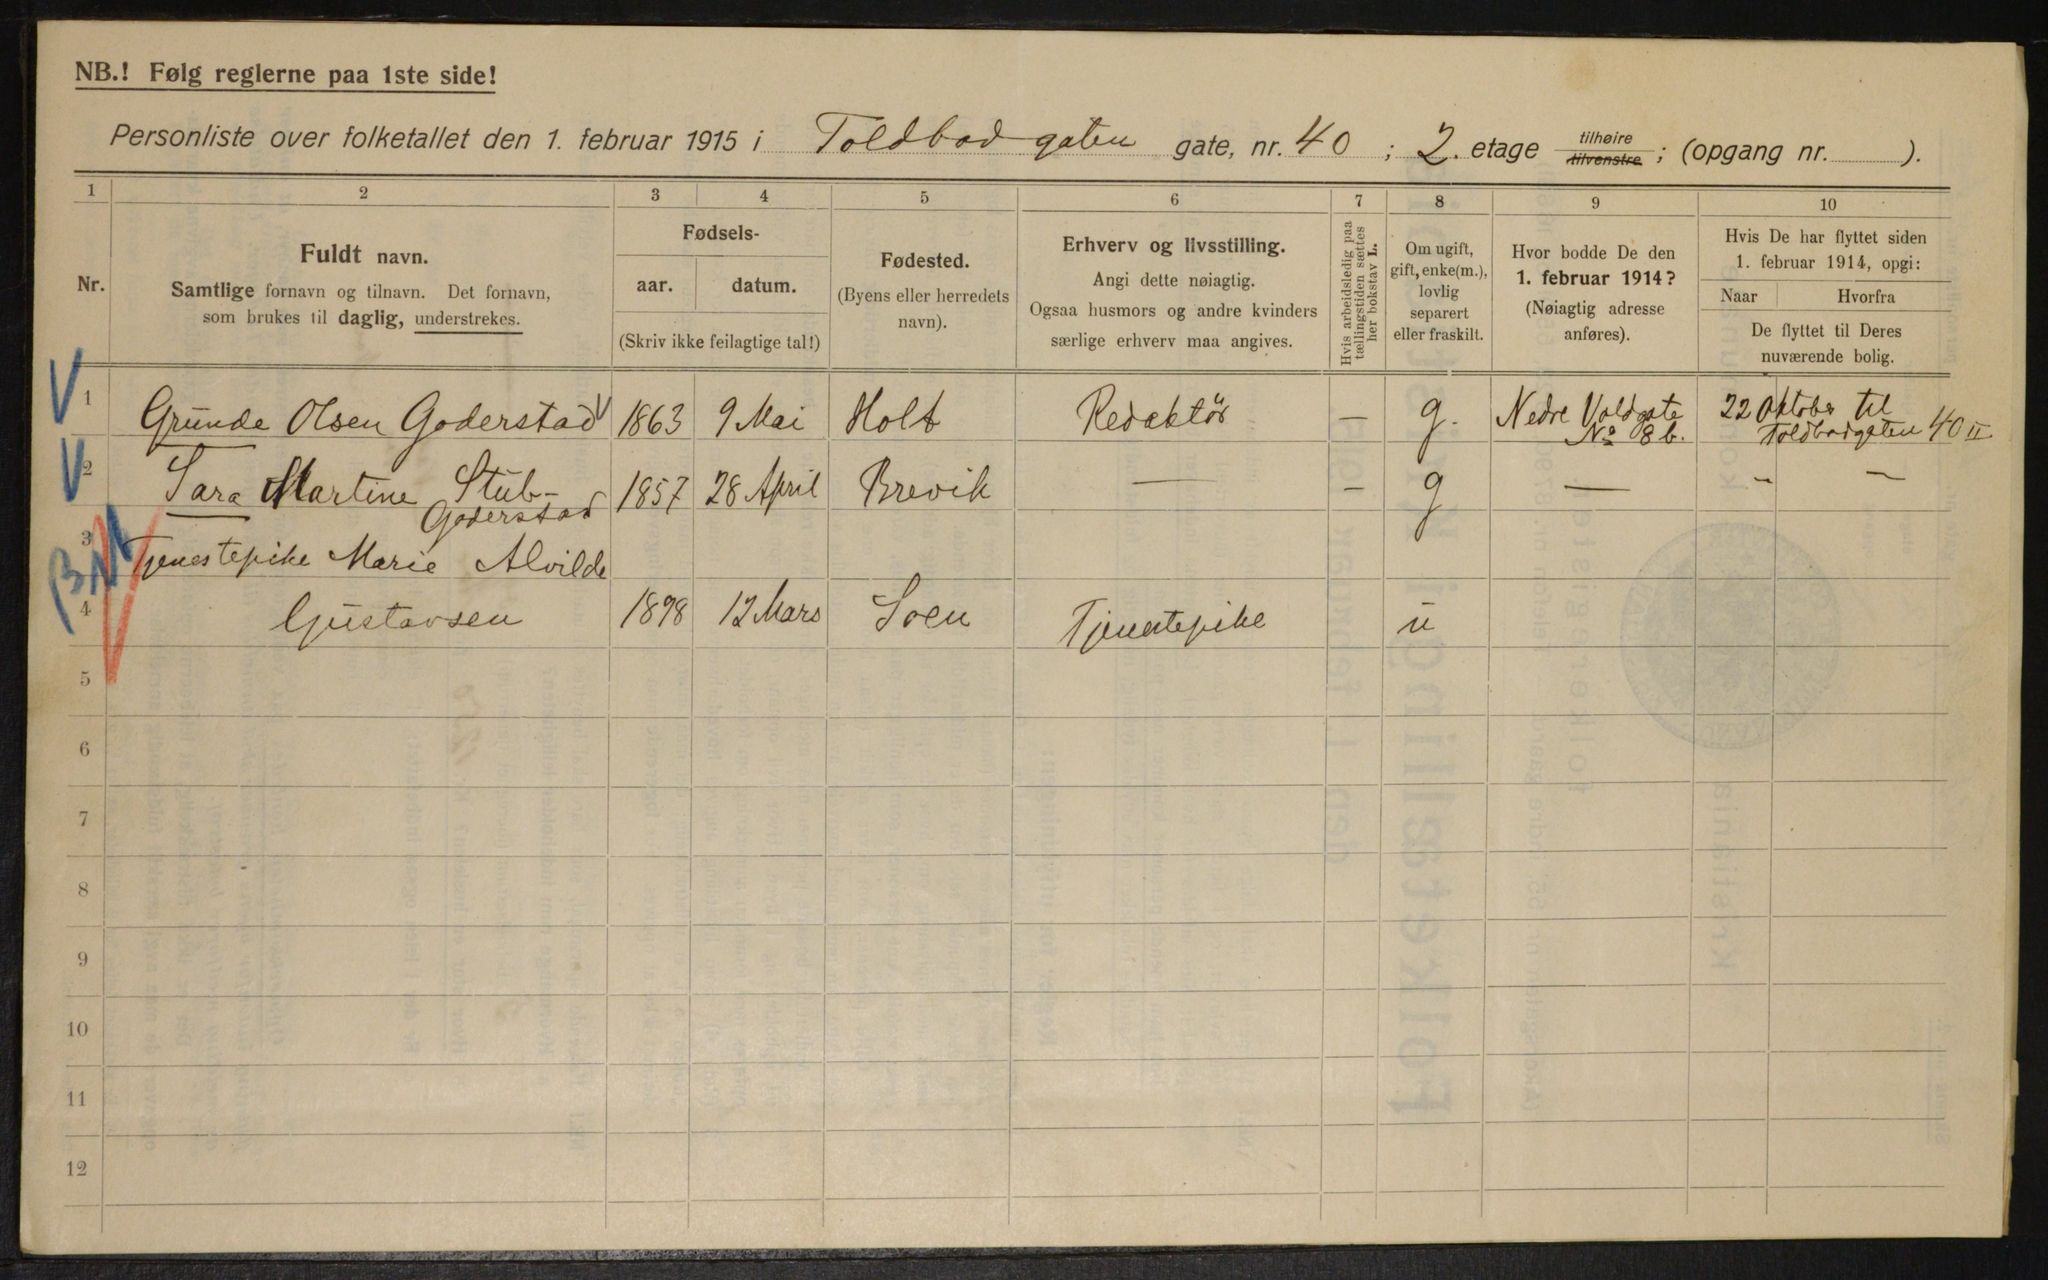 NB.! Følg reglerne paa 1ste side!
Personliste over folketallet den 1. februar 1915 i Toldbodgaten gate, nr. 40 ; 2. etage tilhøire tilvenstre ; (opgang nr. ).
1 2 3 4 5 6 7 8 9 10
Nr.
Fuldt navn.
Samtlige fornavn og tilnavn. Det fornavn,
som brukes til daglig, understrekes.
Fødsels-
aar. datum.
(Skriv ikke feilagtige tal!)
Fødested.
(Byens eller herredets
navn).
Erhverv og livsstilling.
Angi dette nøiagtig.
Ogsaa husmors og andre kvinders
særlige erhverv maa angives.
Hvis arbeidsledig paa
tællingstiden sættes
her bokstav L.
Om ugift,
gift, enke(m.),
lovlig
separert
eller fraskilt.
Hvor bodde De den
1. februar 1914?
(Nøiagtig adresse
anføres).
Hvis De har flyttet siden
1. februar 1914, opgi:
Naar Hvorfra
De flyttet til Deres
nuværende bolig.
1 Grunde Olsen Goderstad 1863 9 Mai Holt Redaktør — g. Nedre Voldgate No 8 b. 22 Oktober til Toldbodgaten 40 II
2 Sara Martine Stub-
Goderstad 1857 28 April Brevik — – g — – –
3 Tjenestepike Marie Alvilde
4 Gustavsen 1898 12 Mars Soen Tjenestepike u
5
6
7
8
9
10
11
12